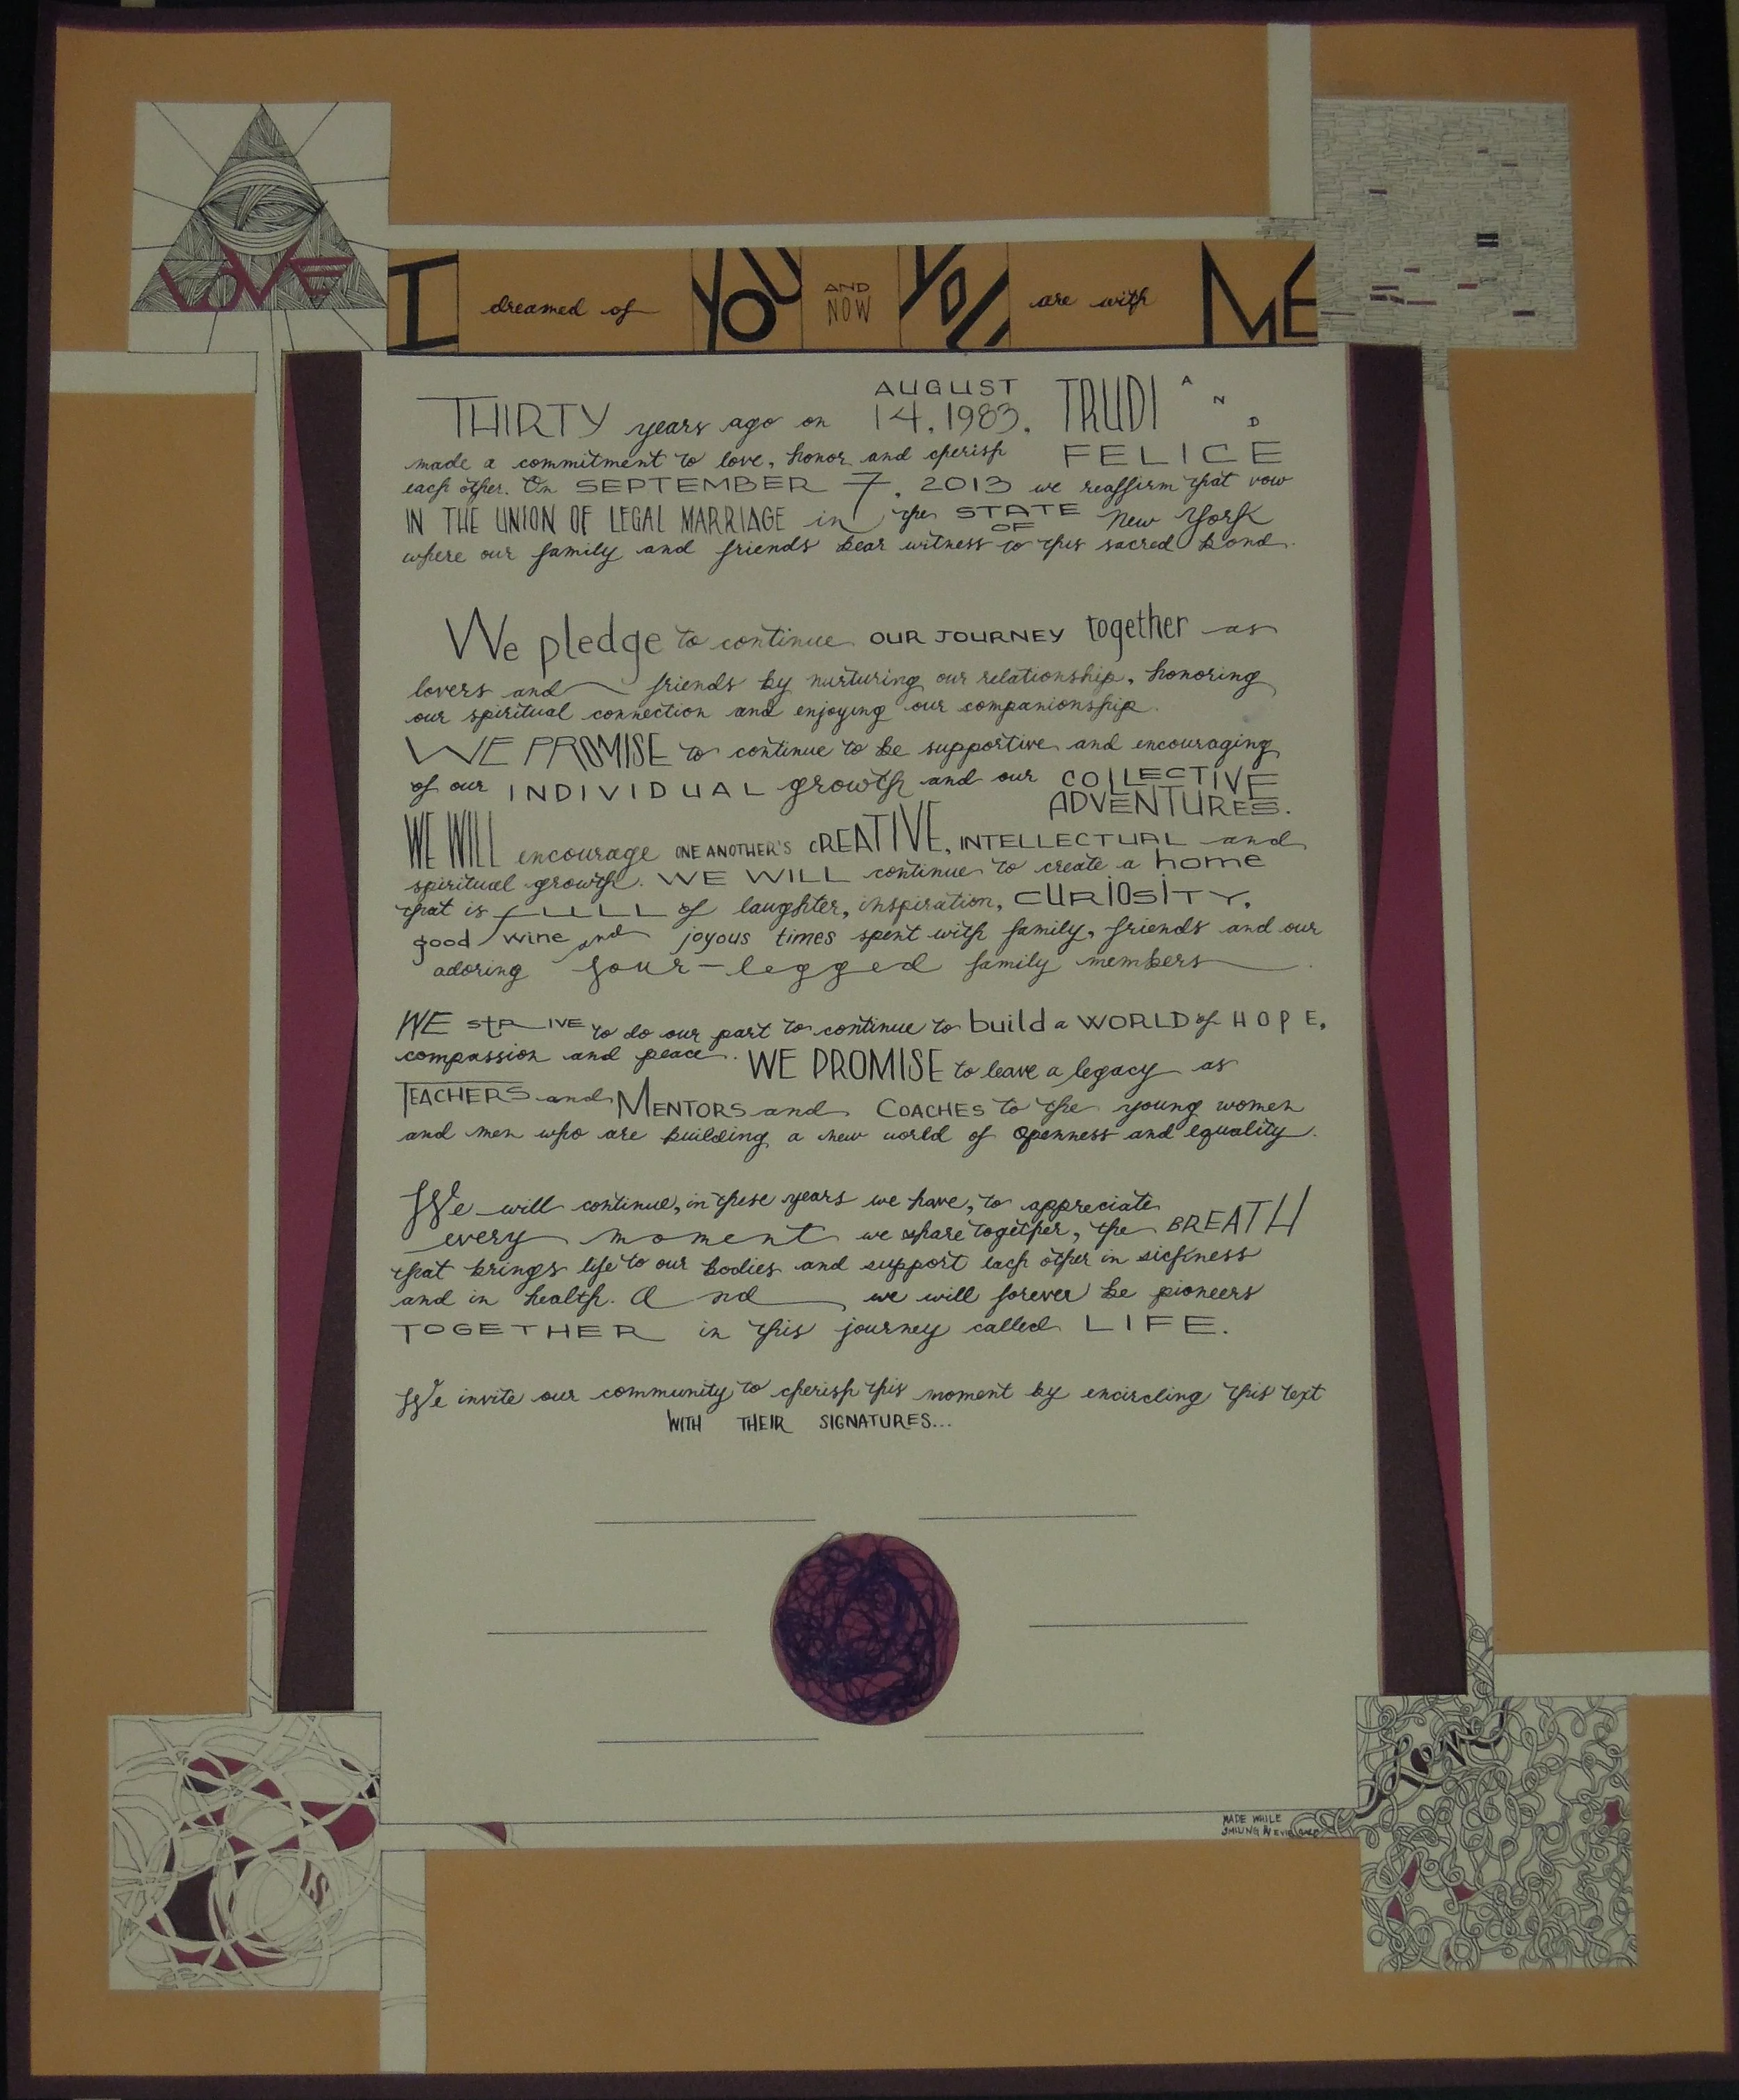 LOVE
I dreamed of YOU AND NOW YOU are with ME
THIRTY years ago on AUGUST 14, 1983, TRUDI AND
made a commitment to love, honor and cherish FELICE
each other. On SEPTEMBER 7, 2013 we reaffirm that vow
IN THE UNION OF LEGAL MARRIAGE in the STATE OF New York
where our family and friends bear witness to this sacred bond.
We pledge to continue OUR JOURNEY together as
lovers and friends by nurturing our relationship, honoring
our spiritual connection and enjoying our companionship.
WE PROMISE to continue to be supportive and encouraging
of our INDIVIDUAL growth and our COLLECTIVE
ADVENTURES.
WE WILL encourage ONE ANOTHER'S CREATIVE, INTELLECTUAL and
spiritual growth. WE WILL continue to create a home
that is FULL of laughter, inspiration, CURIOSITY,
good wine and joyous times spent with family, friends and our
adoring four-legged family members.
WE STRIVE to do our part to continue to build a WORLD of HOPE,
compassion and peace. WE PROMISE to leave a legacy as
TEACHERS and MENTORS and COACHES to the young women
and men who are building a new world of openness and equality.
We will continue, in these years we have, to appreciate
every moment we share together, the BREATH
that brings life to our bodies and support each other in sickness
and in health. And we will forever be pioneers
TOGETHER in this journey called LIFE.
We invite our community to cherish this moment by encircling this text
WITH THEIR SIGNATURES...
love
IS
MADE WHILE
SMILING BY